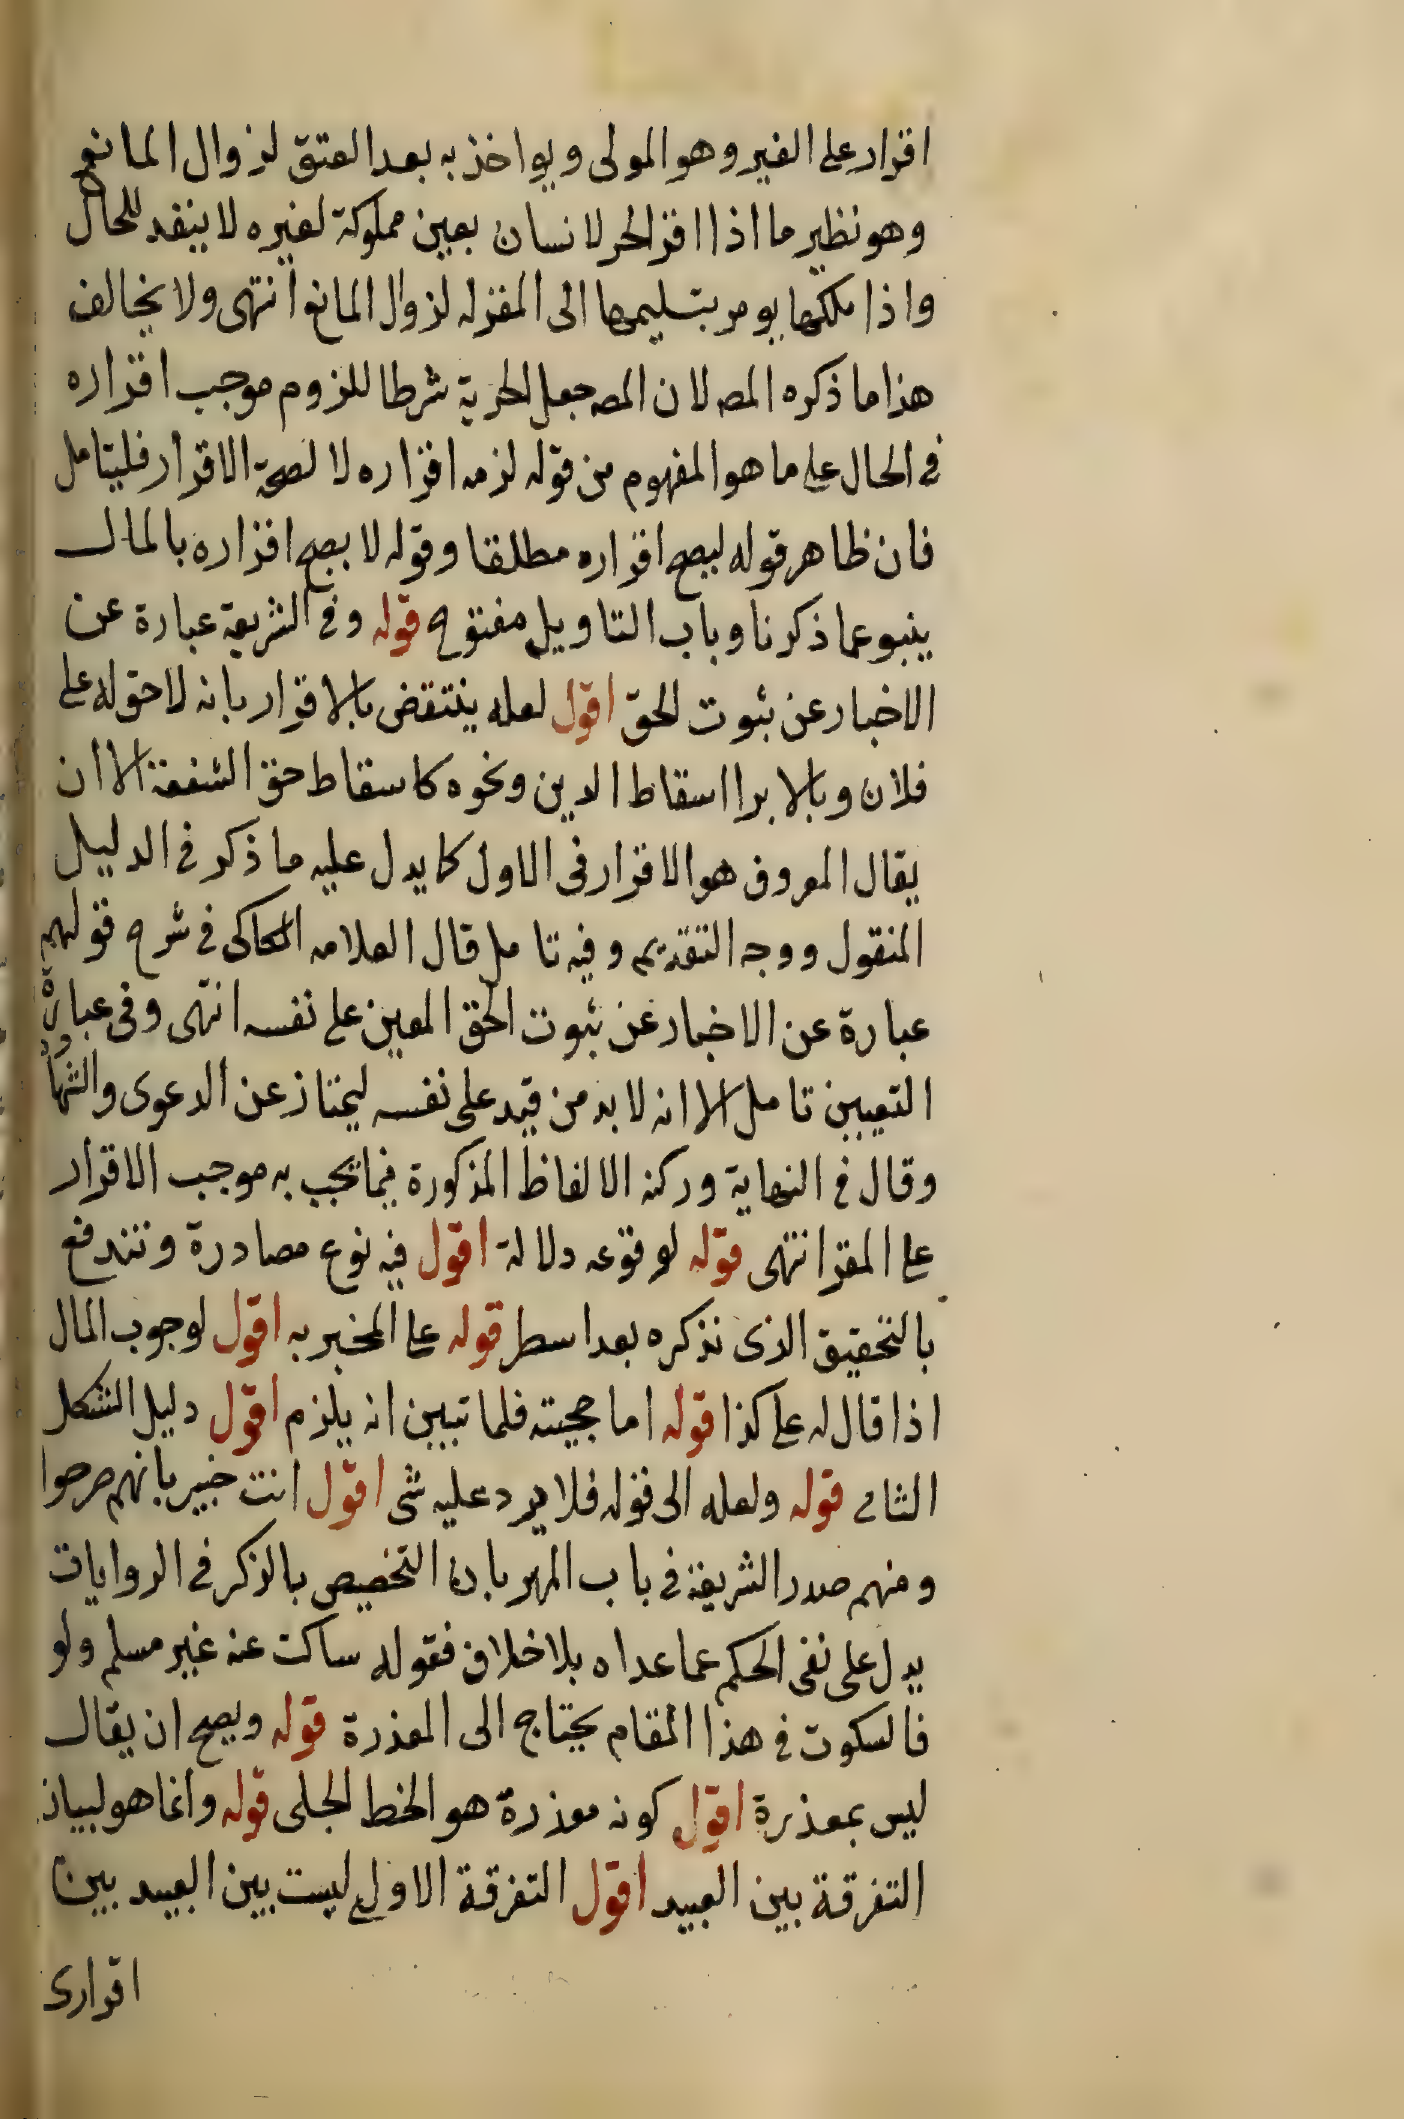 اقرار على الغير وهو المولى ويواخذ به بعد العتق لزوال المانع
وهو نظير ما اذا اقر الحر لانسان بعين مملوكة لغيره لا ينفد للحال
واذا ملكها يومر بتسليمها الى المقر له لزوال المانع انتهى ولا يخالف
هذا ما ذكره المص لان المص جعل الحرية شرطا للزوم موجب اقراره
فى الحال على ما هو المفهوم من قوله لزمه اقراره لا لصحة الاقرار فليتامل
فان ظاهر قوله ليصح اقراره مطلقا وقوله لا يصح اقراره بالمال
ينبو عما ذكرنا وباب التاويل مفتوح قوله وفى الشريعة عبارة عن
الاخبار عن ثبوت الحق اقول لعله ينتقض بالاقرار بانه لا حق له على
فلان وبالابرا اسقاط الدين ونحوه كاسقاط حق الشفعة الا ان
يقال المعروف هو الاقرار فى الاول كما يدل عليه ما ذكر فى الدليل
المنقول ووجه التقديم وفيه تامل قال العلامه الكاكى فى شرح قولهم
عبارة عن الاخبار عن ثبوت الحق المعين على نفسه انتهى وفى عبارة
التعيين تامل الا انه لا بد من قيد على نفسه ليمتاز عن الدعوى والشهادة
وقال فى النهاية وركنه الالفاظ المذكورة فيما يجب به موجب الاقرار
على المقر انتهى قوله لوقوعه دلالة اقول فيه نوع مصادرة وتندفع
بالتحقيق الذى نذكره بعد اسطر قوله على المخبر به اقول لوجوب المال
اذا قال له على كذا قوله اما حجيته فلما تبين انه يلزم اقول دليل الشكل
الثانى قوله ولعله الى قوله فلا يرد عليه شى اقول انت خبير بانهم صرحوا
ومنهم صدر الشريعة فى باب المهر بان التخصيص بالذكر فى الروايات
يدل على نفى الحكم عما عداه بلا خلاف فقوله ساكت عنه غير مسلم ولو
فالسكوت فى هذا المقام يحتاج الى المعذرة قوله ويصح ان يقال
ليس بمعذرة اقول كونه معذرة هو الخط الجلى قوله وانما هو لبيان
التفرقة بين العبيد اقول التفرقة الاولى ليست بين العبيد بين
اقرارى